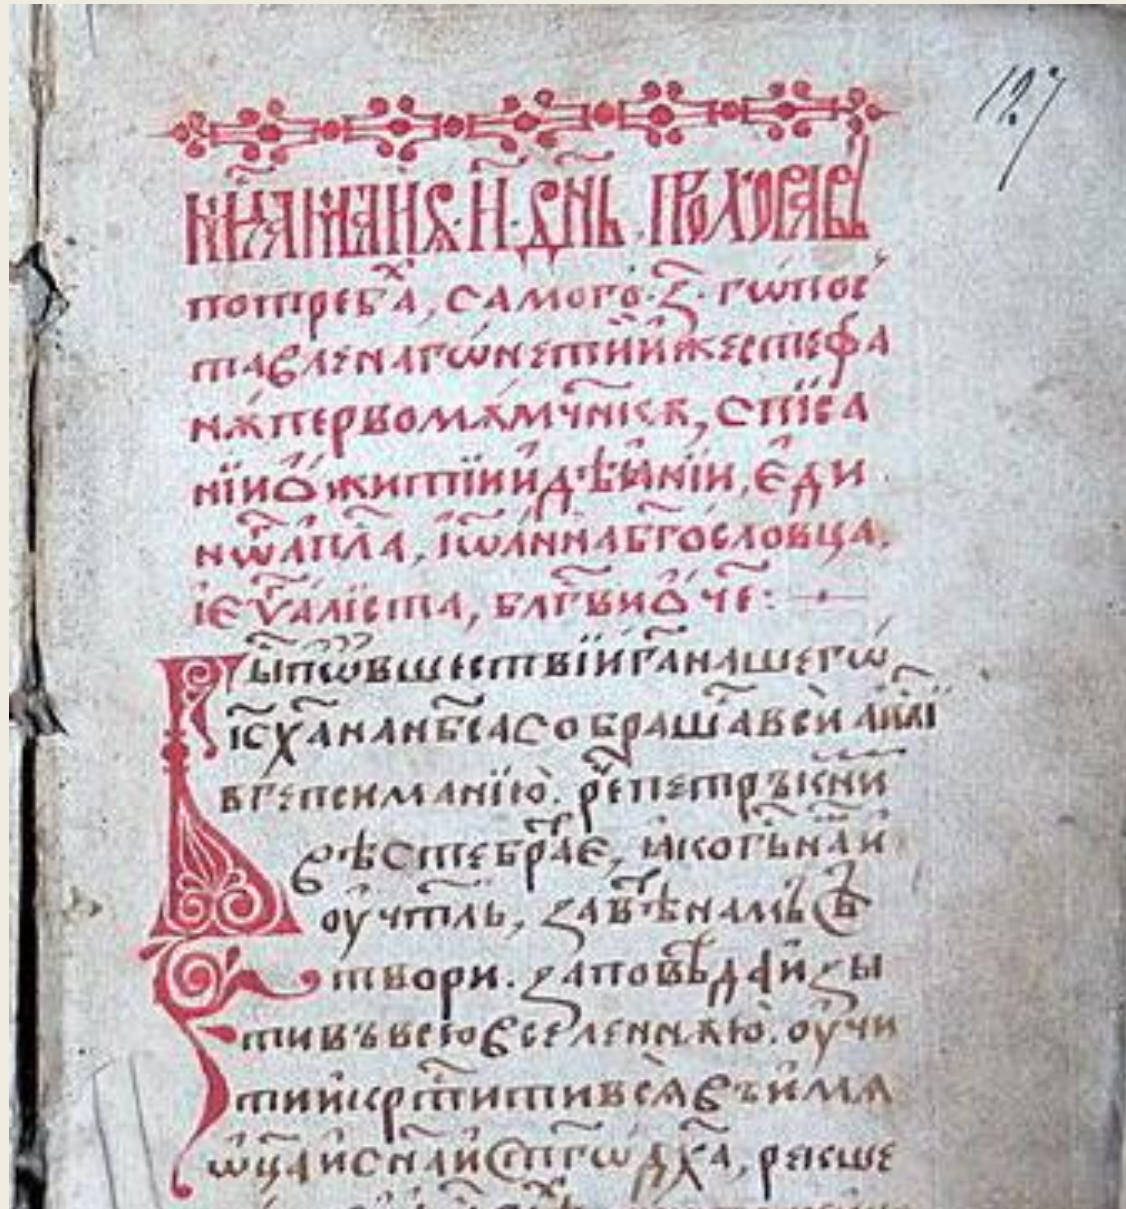 127
мц҃а маиѧ · и҃ · дн҃ь прохора въ
потребⷯа, самого · з҃ · гѡ пос
тавленагѡ нетїй иже стефа
нѫ первомѫмч҃никꙋ, спїса
нїи ѻ житїи и дѣанїи, еди
нѡⷨ ап҃ла, іѡанна бг҃ословца,
і еѵⷢ҃алїста, блгⷭ҇ви ѻч҃е:
Бы по вшествїи га҃ нашегѡ
іс҃ х҃а на нб҃са собрашасѧ вси ап҃лї
в гепсиманїю. рече петръ к ни
вѣсте братїе, ꙗко гь҃ наⷲ и
оучт҃ль, завѣ намъ
твори. заповѣда и ꙗзы
ти въ всю вселеннꙋю. оучи
ти и кртⷭ҇ити всѧ въ имѧ
ѡц҃а и сн҃а и ст҃гѡ дх҃а, рекше